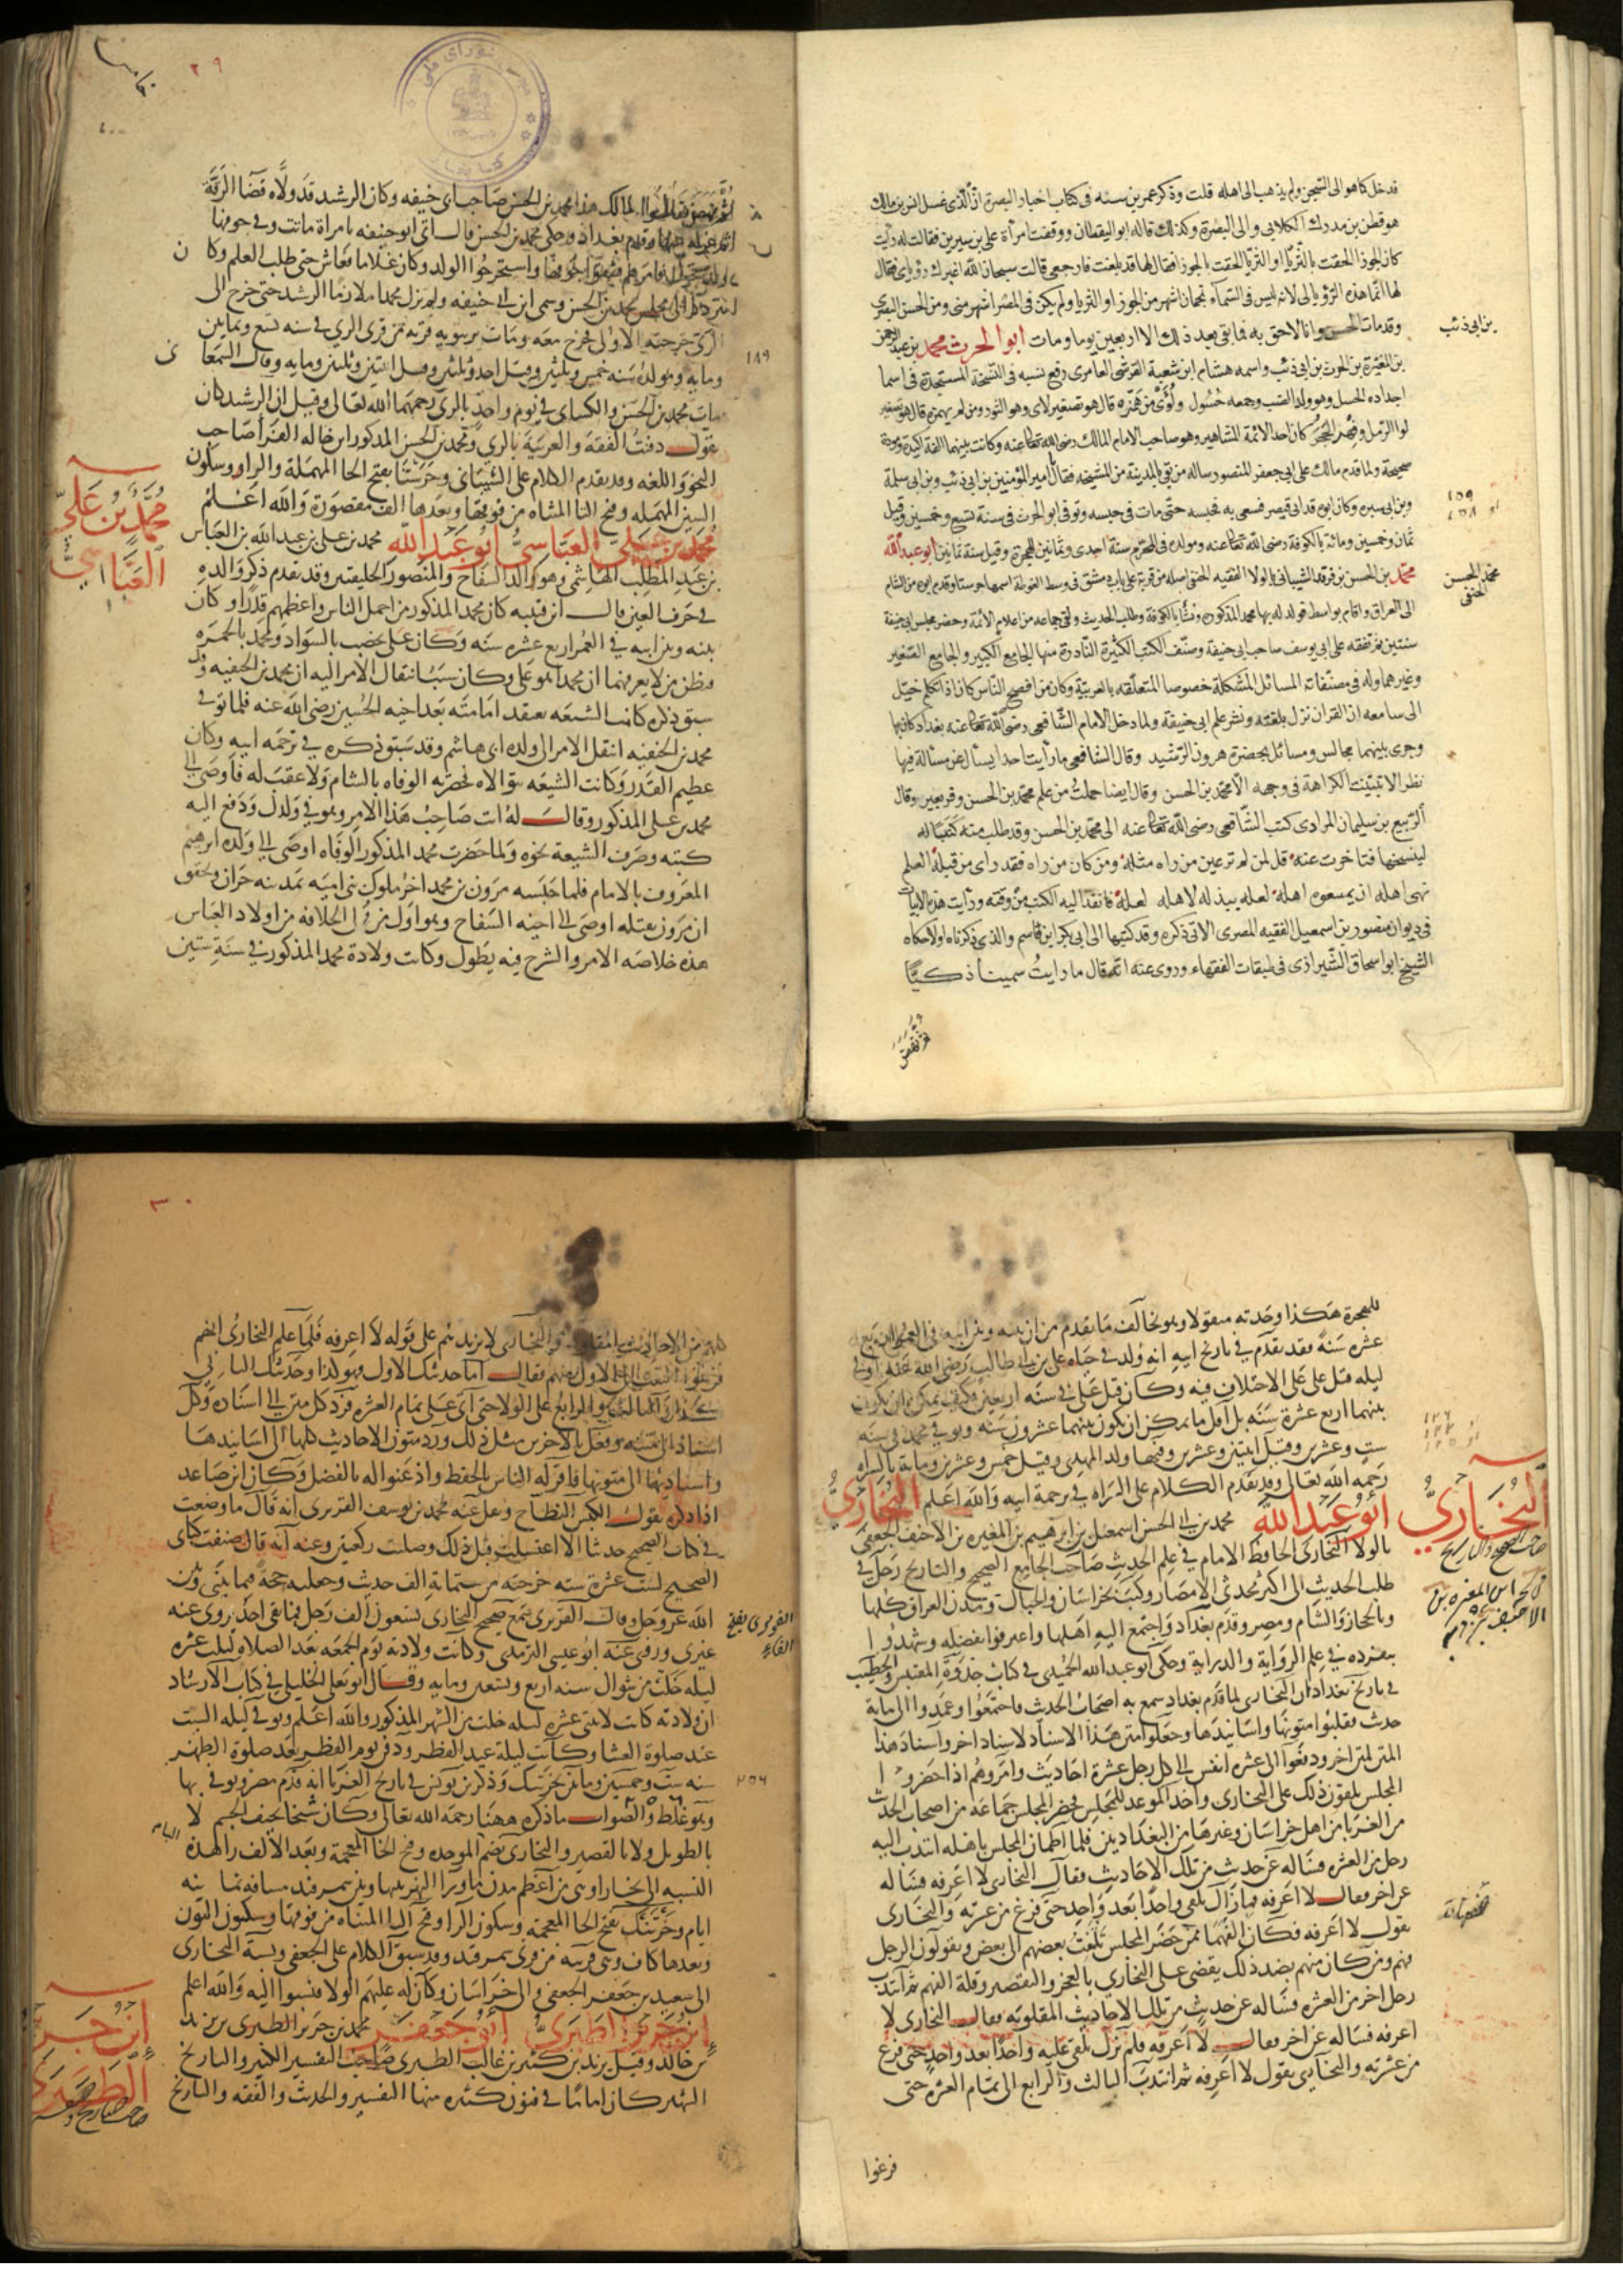 فدخل كما هو الى السجن ولم يذهب الى اهله قلت وذكر عمر بن سنه فى كتاب اخبار البصرة ان الذى غسل انس بن مالك
هو قطن بن مدرك الكلابى والى البصرة وكذلك قاله ابو اليقظان ووقفت امرأة على بن سيرين فقالت له رأيت
كان الجوزا التحقت بالثريا او الثريا التحقت بالجوزا فقال لها قد بلغت فارجعى قالت سبحان الله اخبرك رؤياى فقال
لها انما هذه الرؤيا لى لانه ليس فى السماء نجمان اشهر من الجوزا والثريا ولم يكن فى المصر اشهر منى ومن الحسن البصرى
وقد مات الحسن وانا لاحق به فما بقى بعد ذلك الا اربعين يوما ومات ابو الحرث محمد بن عبد الرحمن
بن المغيرة بن الحرث بن ابى ذئب واسمه هشام ابن شعبة القرشى العامرى رفع نسبه فى النسخة المستجدة فى اسما
اجداده الحسل وهو ولد الضب وجمعه حسول ولؤى من همزه قال هو تصغير لاى وهو الثور ومن لم يهمزه قال هو تصغير
لوا الرمل وفهر الحجر كان احد الائمة المشاهير وهو صاحب الامام المالك رضى الله تعالى عنه وكانت بينهما الفة اكيدة ومودة
صحيحة ولما قدم مالك على ابى جعفر المنصور ساله من بقى بالمدينة من المشيخة فقال يا امير المؤمنين بن ابى ذئب وبن ابى سلمة
وبن ابى سبره وكان ابوه قد اتى قيصر فسعى به فحبسه حتى مات فى حبسه وتوفى ابو الحرث فى سنة تسع وخمسين وقيل
ثمان وخمسين ومائة بالكوفة رضى الله تعالى عنه ومولده فى المحرم سنة احدى وثمانين للهجرة وقيل سنة ثمانين ابو عبد الله
محمد بن الحسن بن فرقد الشيبانى بالولا الفقيه الحنفى اصله من قرية على باب دمشق فى وسط الغوطة اسمها حرستا وقدم ابوه من الشام
الى العراق واقام بواسط فولد له بها محمد المذكور ونشا بالكوفة وطلب الحديث ولقى جماعة من اعلام الائمة وحضر مجلس ابى حنيفة
سنتين ثم تفقه على ابى يوسف صاحب ابى حنيفة وصنف الكتب الكثيرة النادرة منها الجامع الكبير والجامع الصغير
وغيرهما وله فى مصنفاته المسائل المشكلة خصوصا المتعلقه بالعربية وكان من افصح الناس كان اذا تكلم خيل
الى سامعه ان القران نزل بلغته ونشر علم ابى حنيفة ولما دخل الامام الشافعى رضى الله تعالى عنه بغداد كان بها
وجرى بينهما مجالس ومسائل بحضرة هرون الرشيد وقال الشافعى ما رأيت احدا يسأل عن مسألة فيها
نظر الا تبينت الكراهة فى وجهه الا محمد بن الحسن وقال ايضا حملت من علم محمد بن الحسن وقر بعير وقال
الربيع بن سليمان المرادى كتب الشافعى رضى الله تعالى عنه الى محمد بن الحسن وقد طلب منه كتبا له
لينسخها فتاخرت عنه قل لمن لم تر عين من راه مثله ومن كان من راه فقد راى من قبله العلم
نهى اهله ان يمنعوه اهله لعله يبذله لاهله لعله فانفذ اليه الكتب من وقته ورأيت هذه الابيات
فى ديوان منصور بن اسمعيل الفقيه المصرى الاتى ذكره وقد كتبها الى ابى بكر ابن قاسم والذى ذكرناه ولا حكاه
الشيخ ابو اسحاق الشيرازى فى طبقات الفقهاء وروى عنه انه قال ما رايت سمينا ذكيا
بن ابى ذئب
١٥٩
او ١٥٨
محمد الحسن
الحنفى
٢٩
لمالك هذا محمد بن الحسن صاحب ابى حنيفه وكان الرشيد قد ولاه قضا الرقة
ثم عزله عنها وقدم بغداد وحكى محمد بن الحسن قال اتى ابو حنيفه بامراة ماتت وفى جوفها
ولد يتحرك فامرهم فشقوا جوفها واستخرجوا الولد وكان غلاما فعاش حتى طلب العلم وكان
يتردد الى مجلس محمد بن الحسن وسمى ابن ابى حنيفه ولم يزل محمد ملازما الرشيد حتى خرج الى
الرى خرجته الاولى فخرج معه ومات برنبويه قريه من قرى الرى فى سنه تسع وثمانين
ومايه ومولده سنه خمس وثلثين وقيل احد وثلثين وقيل اثنتين وثلثين ومايه وقال السمعانى
مات محمد بن الحسن والكسائى فى يوم واحد بالرى رحمهما الله تعالى وقيل ان الرشيد كان
يقول دفنت الفقه والعربية بالرى ومحمد بن الحسن المذكور ابن خاله الفرا صاحب
النحو واللغه وقد تقدم الكلام على الشيبانى وحرستا بفتح الحا المهملة والرا وسكون
السين المهمله وفتح التا المثناه من فوقها وبعدها الف مقصورة والله اعلم
محمد بن على العباسى ابو عبد الله محمد بن على بن عبد الله بن العباس
بن عبد المطلب الهاشمى وهو والد السفاح والمنصور الخليفتين وقد تقدم ذكر والده
فى حرف العين قال ابن قتيبه كان محمد المذكور من اجمل الناس واعظمهم قدرا وكان
بينه وبين ابيه فى العمر اربع عشره سنه وكان على يخضب بالسواد ومحمد بالحمره
فيظن من لا يعرفهما ان محمدا هو على وكان سبب انتقال الامر اليه ان محمد بن الحنفيه وقد
سبق ذكره كانت الشيعه تعتقد امامته بعد اخيه الحسين رضى الله عنه فلما توفى
محمد بن الحنفيه انتقل الامر الى ولده ابى هاشم وقد سبق ذكره فى ترجمه ابيه وكان
عظيم القدر وكانت الشيعه تتوالاه فحضرته الوفاه بالشام ولا عقب له فاوصى الى
محمد بن على المذكور وقال له انت صاحب هذا الامر وهو فى ولدك ودفع اليه
كتبه وصرف الشيعة نحوه ولما حضرت محمد المذكور الوفاه اوصى الى ولده ابرهيم
المعروف بالامام فلما حبسه مرون بن محمد اخر ملوك بنى اميه بمدينه حران وتحقق
ان مرون يقتله اوصى الى اخيه السفاح وهو اول من ولى الخلافه من اولاد العباس
هذه خلاصه الامر والشرح فيه يطول وكانت ولادة محمد المذكور فى سنة ستين
١٨٩
محمد بن على
العباسى
للهجرة هكذا وجدته منقولا وهو يخالف ما تقدم من ان بينه وبين ابيه فى العمر اربع
عشره سنة فقد تقدم فى تاريخ ابيه انه ولد فى حياه على بن ابى طالب رضى الله عنه او فى
ليله قتل على على الاختلاف فيه وكان قتل على فى سنه اربعين فكيف يمكن ان يكون
بينهما اربع عشرة سنه بل اقل ما يمكن ان يكون بينهما عشرون سنه وتوفى محمد فى سنه
ست وعشرين وقيل اثنتين وعشرين وفيها ولد المهدى وقيل خمس وعشرين ومايه بالشراه
رحمه الله تعالى وقد تقدم الكلام على الشراه فى ترجمة ابيه والله اعلم البخارى
ابو عبد الله محمد بن ابى الحسن اسمعيل بن ابرهيم بن المغيره بن الاحنف الجعفى
بالولا البخارى الحافظ الامام فى علم الحديث صاحب الجامع الصحيح والتاريخ رحل فى
طلب الحديث الى اكثر محدثى الامصار وكتب بخراسان والجبال ومدن العراق كلها
وبالحجاز والشام ومصر وقدم بغداد واجتمع اليه اهلها واعترفوا بفضله وشهدوا
بتفرده فى علم الرواية والدراية وحكى ابو عبد الله الحميدى فى كتاب جذوة المقتبس والخطيب
فى تاريخ بغداد ان البخارى لما قدم بغداد سمع به اصحاب الحديث فاجتمعوا وعمدوا الى ماية
حديث فقلبوا متونها واسانيدها وجعلوا متن هذا الاسناد لاسناد اخر واسناد هذا
المتن لمتن اخر ودفعوا الى عشره انفس الى كل رجل عشرة احاديث وامروهم اذا حضروا
المجلس يلقون ذلك على البخارى واخذ الموعد للمجلس فحضر المجلس جماعة من اصحاب الحديث
من الغربا من اهل خراسان وغيرها من البغداديين فلما اطمان المجلس باهله انتدب اليه
رجل من العشره فساله عن حديث من تلك الاحاديث فقال البخارى لا اعرفه فساله
عن اخر فقال لا اعرفه فما زال يلقى واحدا بعد واحد حتى فرغ من عشرته والبخارى
يقول لا اعرفه فكان الفهما ممن حضر المجلس يلتفت بعضهم الى بعض ويقولون الرجل
فهم ومن كان منهم بضد ذلك يقضى على البخارى بالعجز والتقصير وقلة الفهم ثم انتدب
رجل اخر من العشره فساله عن حديث من تلك الاحاديث المقلوبه فقال البخارى لا
اعرفه فساله عن اخر فقال لا اعرفه فلم يزل يلقى عليه واحدا بعد واحد حتى فرغ
من عشرته والبخارى يقول لا اعرفه ثم انتدب الثالث والرابع الى تمام العشره حتى
البخارى
صاحب الصحيح والتاريخ
فرغوا
٣٠
كلهم من الاحاديث المقلوبه والبخارى لا يزيدهم على قوله لا اعرفه فلما علم البخارى انهم
فرغوا التفت الى الاول منهم فقال اما حديثك الاول فهو كذا وحديثك الثانى
كذا والثالث والرابع على الولا حتى اتى على تمام العشره فرد كل متن الى اسناده وكل
اسناد الى متنه وفعل بالاخرين مثل ذلك ورد متون الاحاديث كلها الى اسانيدها
واسانيدها الى متونها فاقر له الناس بالحفظ واذعنوا له بالفضل وكان ابن صاعد
اذا ذكره يقول الكبش النطاح ونقل عنه محمد بن يوسف الفربرى انه قال ما وضعت
فى كتاب الصحيح حديثا الا اغتسلت قبل ذلك وصليت ركعتين وعنه انه قال صنفت كتابى
الصحيح لست عشرة سنه خرجته من ستماية الف حديث وجعلته حجة فيما بينى وبين
الله عز وجل وقال الفربرى سمع صحيح البخارى تسعون الف رجل فما بقى احد يروى عنه
غيرى وروى عنه ابو عيسى الترمذى وكانت ولادته يوم الجمعه بعد الصلاه لثلث عشره
ليله خلت من شوال سنه اربع وتسعين ومايه وقال ابو يعلى الخليلى فى كتاب الارشاد
ان ولادته كانت لاثنتى عشره ليله خلت من الشهر المذكور والله اعلم وتوفى ليله السبت
عند صلوة العشا وكانت ليلة عيد الفطر ودفن يوم الفطر بعد صلوة الظهر
سنه ست وخمسين وماتين بخرتنك وذكر بن يونس فى تاريخ الغربا انه قدم مصر وتوفى بها
وهو غلط والصواب ما ذكره ههنا رحمه الله تعالى وكان شيخا نحيف الجسم لا
بالطويل ولا بالقصير والبخارى بضم الموحده وفتح الخا المعجمة وبعد الالف را هذه
النسبه الى بخارا وهى من اعظم مدن ماورا النهر بينها وبين سمرقند مسافه ثمانيه
ايام وخرتنك بفتح الخا المعجمة وسكون الرا وفتح التا المثناه من فوقها وسكون النون
وبعدها كاف وهى قريه من قرى سمرقند وقد سبق الكلام على الجعفى ونسبة البخارى
الى سعيد بن جعفر الجعفى والى خراسان وكان له عليهم الولا فنسبوا اليه والله اعلم
ابن جرير الطبرى ابو جعفر محمد بن جرير الطبرى بن يزيد
بن خالد وقيل يزيد بن كثير بن غالب الطبرى صاحب التفسير الكبير والتاريخ
الشهير كان اماما فى فنون كثيره منها التفسير والحديث والفقه والتاريخ
الفربرى بفتح
الفاء
٢٥٦
ابن جرير
الطبرى